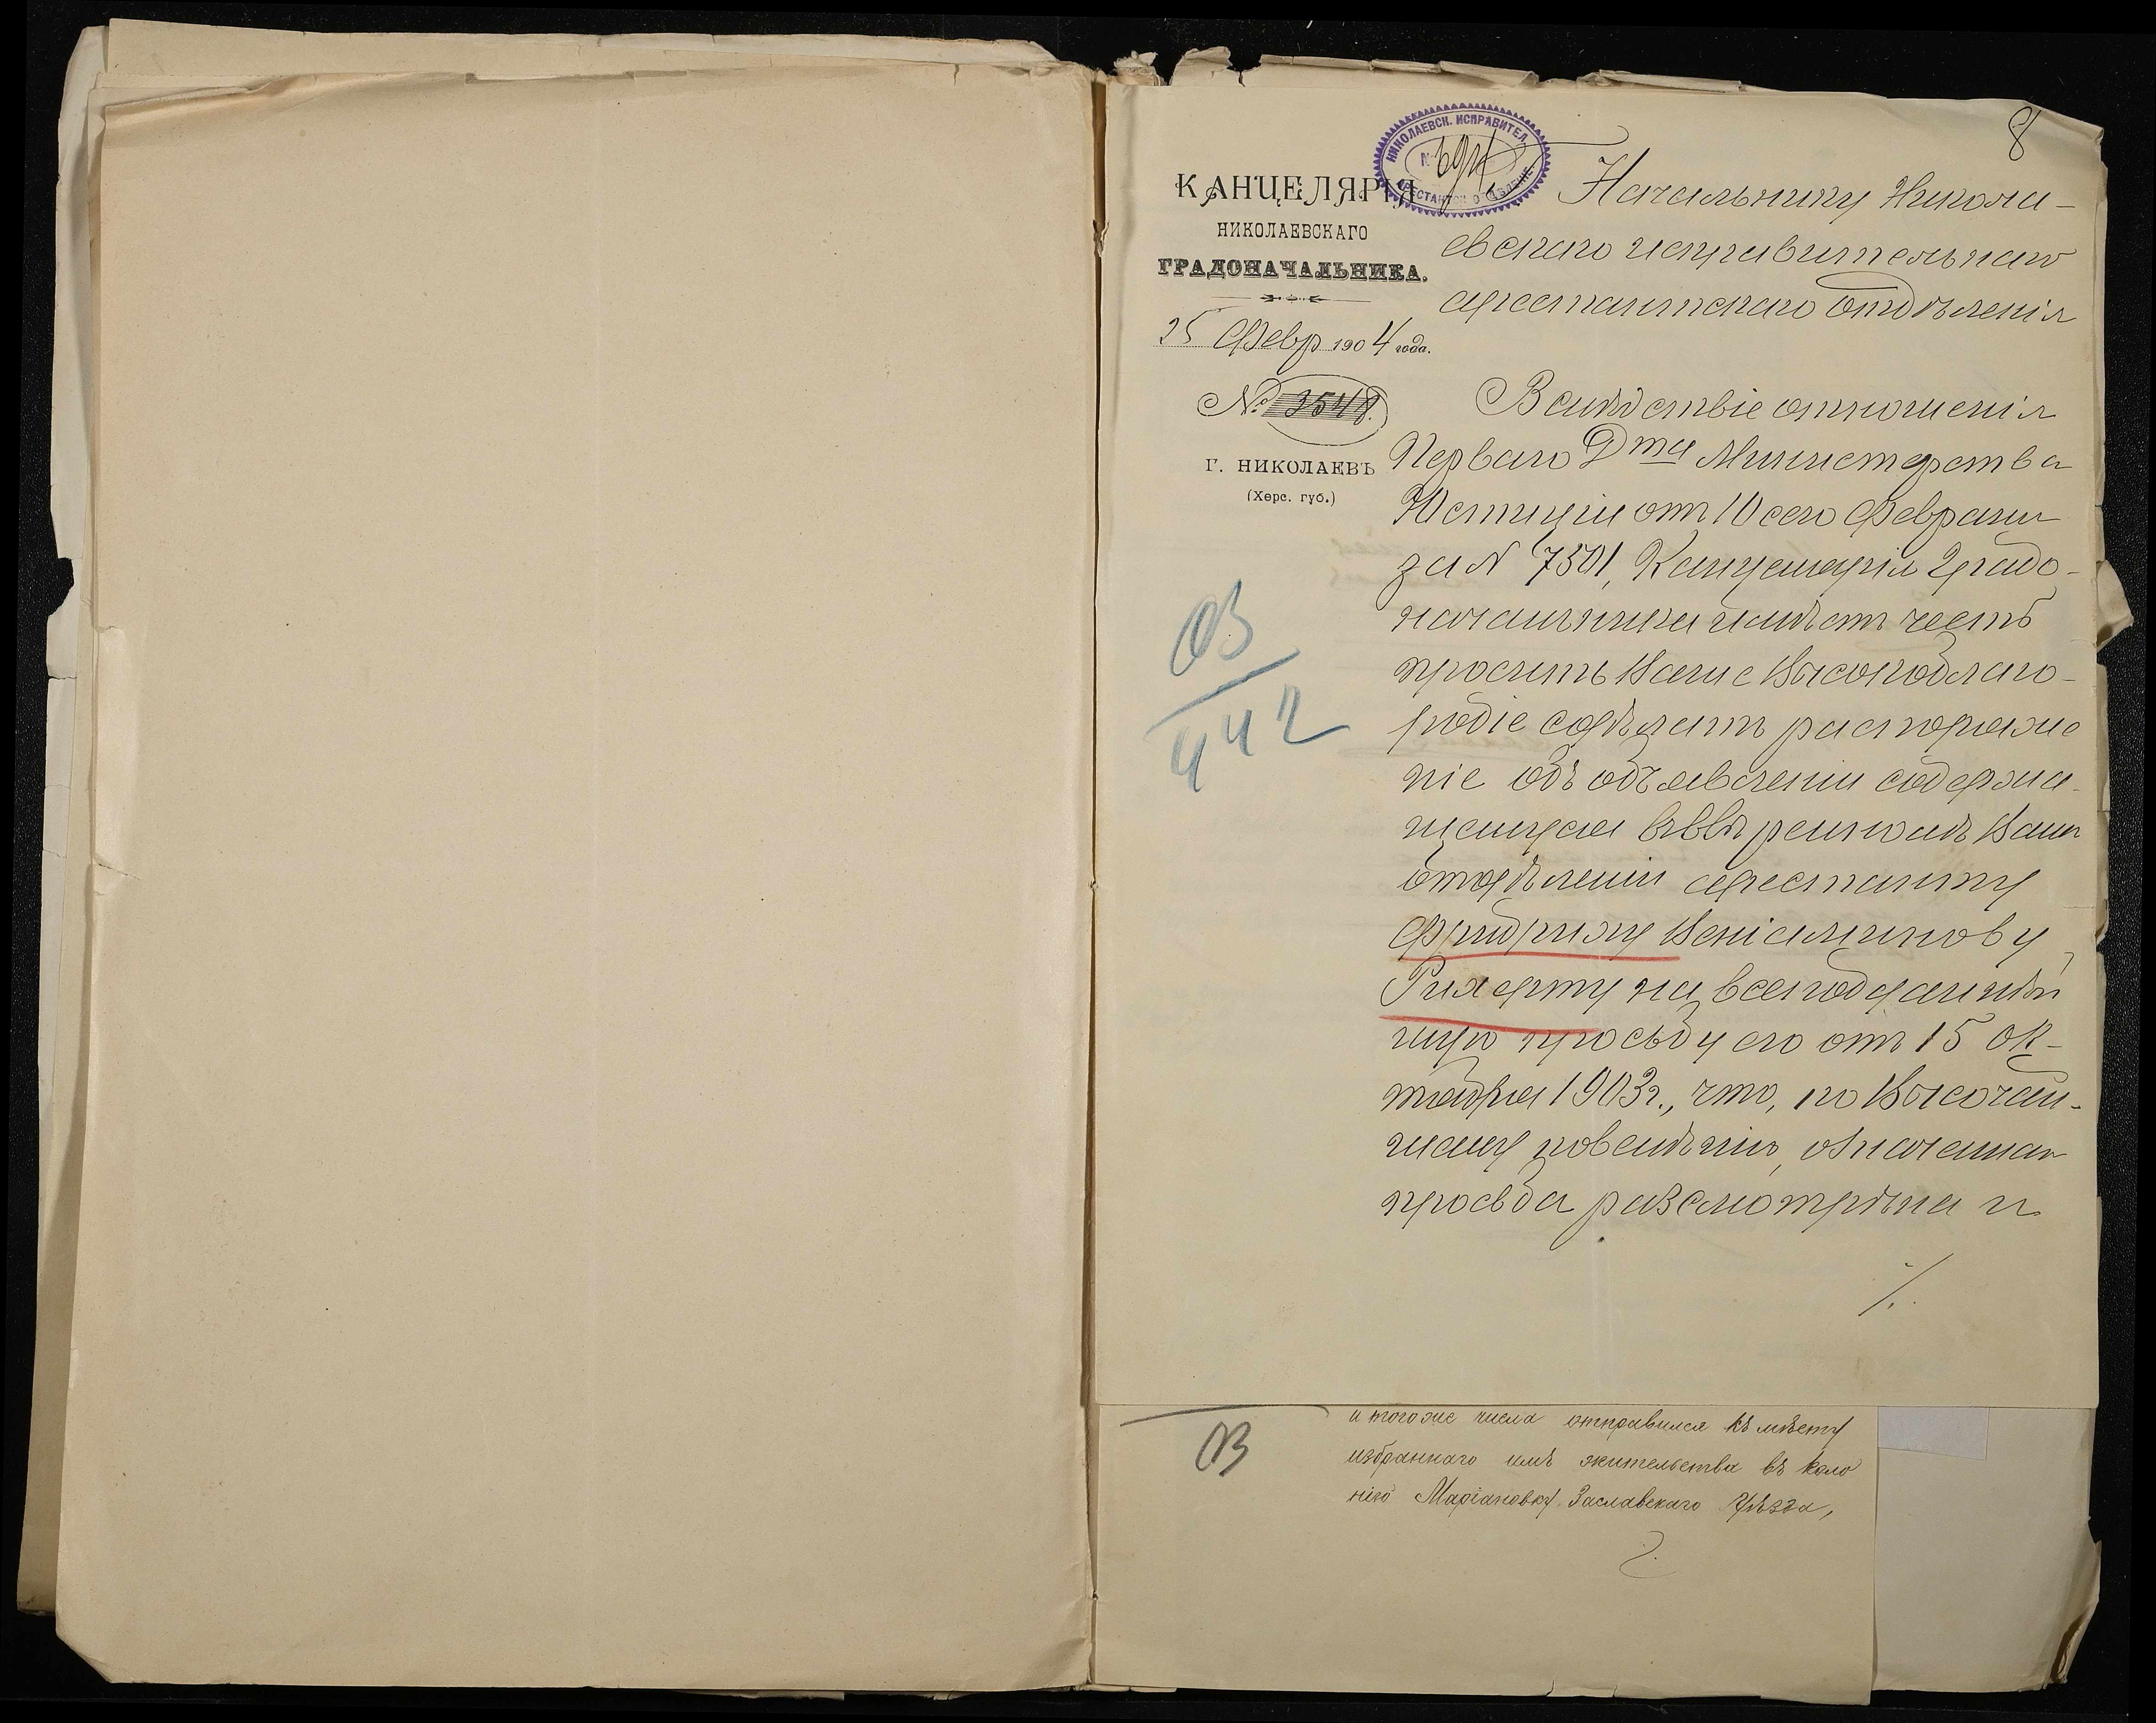 8
НИКОЛАЕВСК. ИСПРАВИТЕЛ.
№ 694
АРЕСТАНТСК ОТДѢЛЕНІЕ
КАНЦЕЛЯРІЯ
НИКОЛАЕВСКАГО
ГРАДОНАЧАЛЬНИКА.
25 Февр 1904 года.
№ 3548.
Г. НИКОЛАЕВЪ
(Херс. губ.)
Начальнику Никола-
евскаго исправительнаго
арестантскаго Отдѣленія
Вслѣдствіе отношенія
Перваго Дта Министерства
Юстиціи отъ 10 сего Февраля
за № 7501, Канцелярія Градо-
начальника имѣетъ честь
просить Ваше Высокоблаго-
родіе сдѣлать распоряже
ніе объ объявленіи содержа-
щемуся въ ввѣренномъ Вамъ
Отдѣленіи арестанту
Фридриху Веніаминову
Рихерту на всеподданнѣй
шую просьбу его отъ 15 Ок-
тября 1903г., что, по Высочай-
шему повелѣнію, означенная
просьба разсмотрѣна и
./.
03
442
03
и того же числа отправился къ мѣсту
избраннаго имъ жительства въ коло
нію Маріановку Заславскаго Уѣзда,